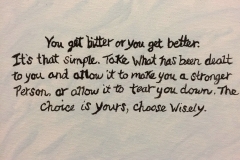 You get bitter or you get better.
It's that simple. Take What has been dealt
to you and allow it to make you a stronger
Person, or allow it to tear you down. The
Choice is yours, choose Wisely.